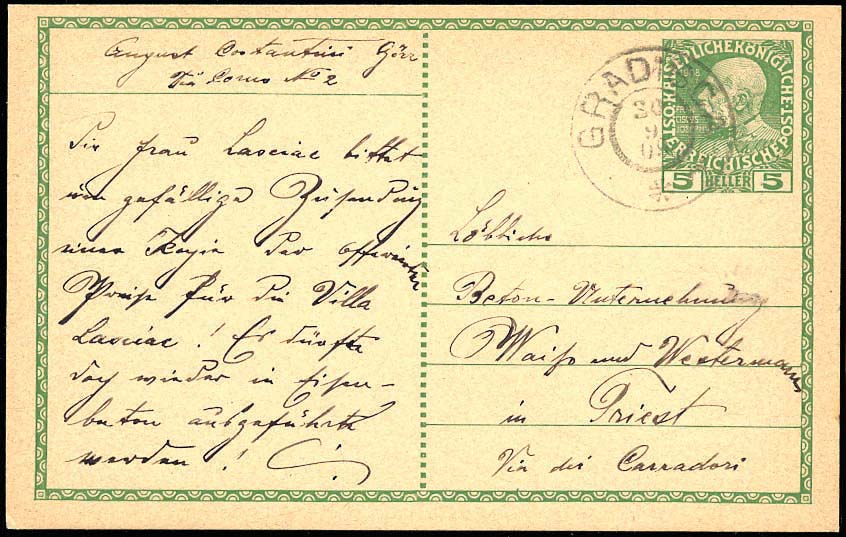 August Costantini Görz
Via Corno No 2
Die Frau Lasciac bittet
um gefällige Zusendung
einer Kopie der offerierten
Preise für die Villa
Lasciac! Es dürfte
doch wieder in Eisen-
beton ausgeführt
werden!
GRADISCA
30
9
09
KAISERLICHE KÖNIGLICHE ÖSTERREICHISCHE POST
1908
5 HELLER 5
Löbliche
Beton-Unternehmung
Waiss und Westermann
in Triest
Via dei Carradori